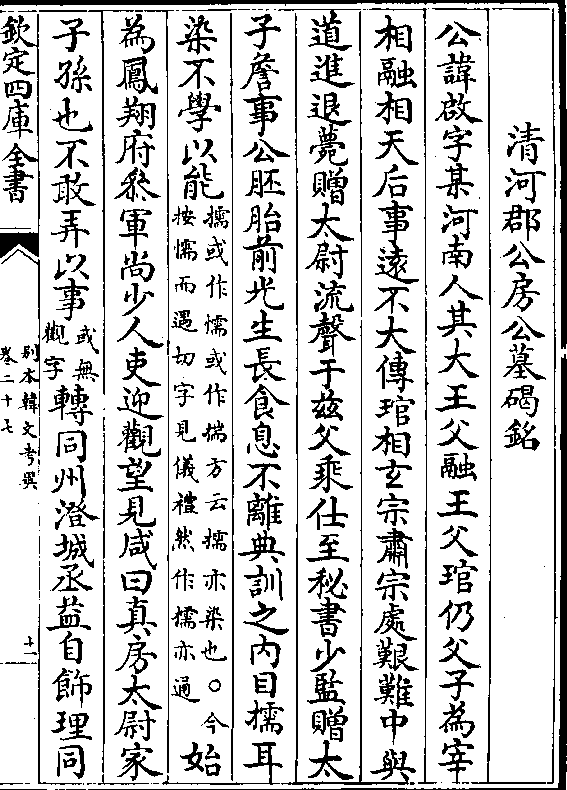 清河郡公房公墓碣銘
公諱啟字某河南人其大王父融王父琯仍父子為宰
相融相天后事遠不大傳琯相玄宗肅宗處艱難中與
道進退薨贈太尉流聲于茲父乘仕至秘書少監贈太
子詹事公胚胎前光生長食息不離典訓之内目擩耳
染不學以能擩或作懦或作㨎方云擩亦染也○今按懦而遇切字見儀禮然作擩亦通始
為鳳翔府叅軍尚少人吏迎觀望見咸曰真房太尉家
子孫也不敢弄以事或無觀字轉同州澄城丞益自飾理同
欽定四庫全書
别本韓文考異
卷二十七
十一